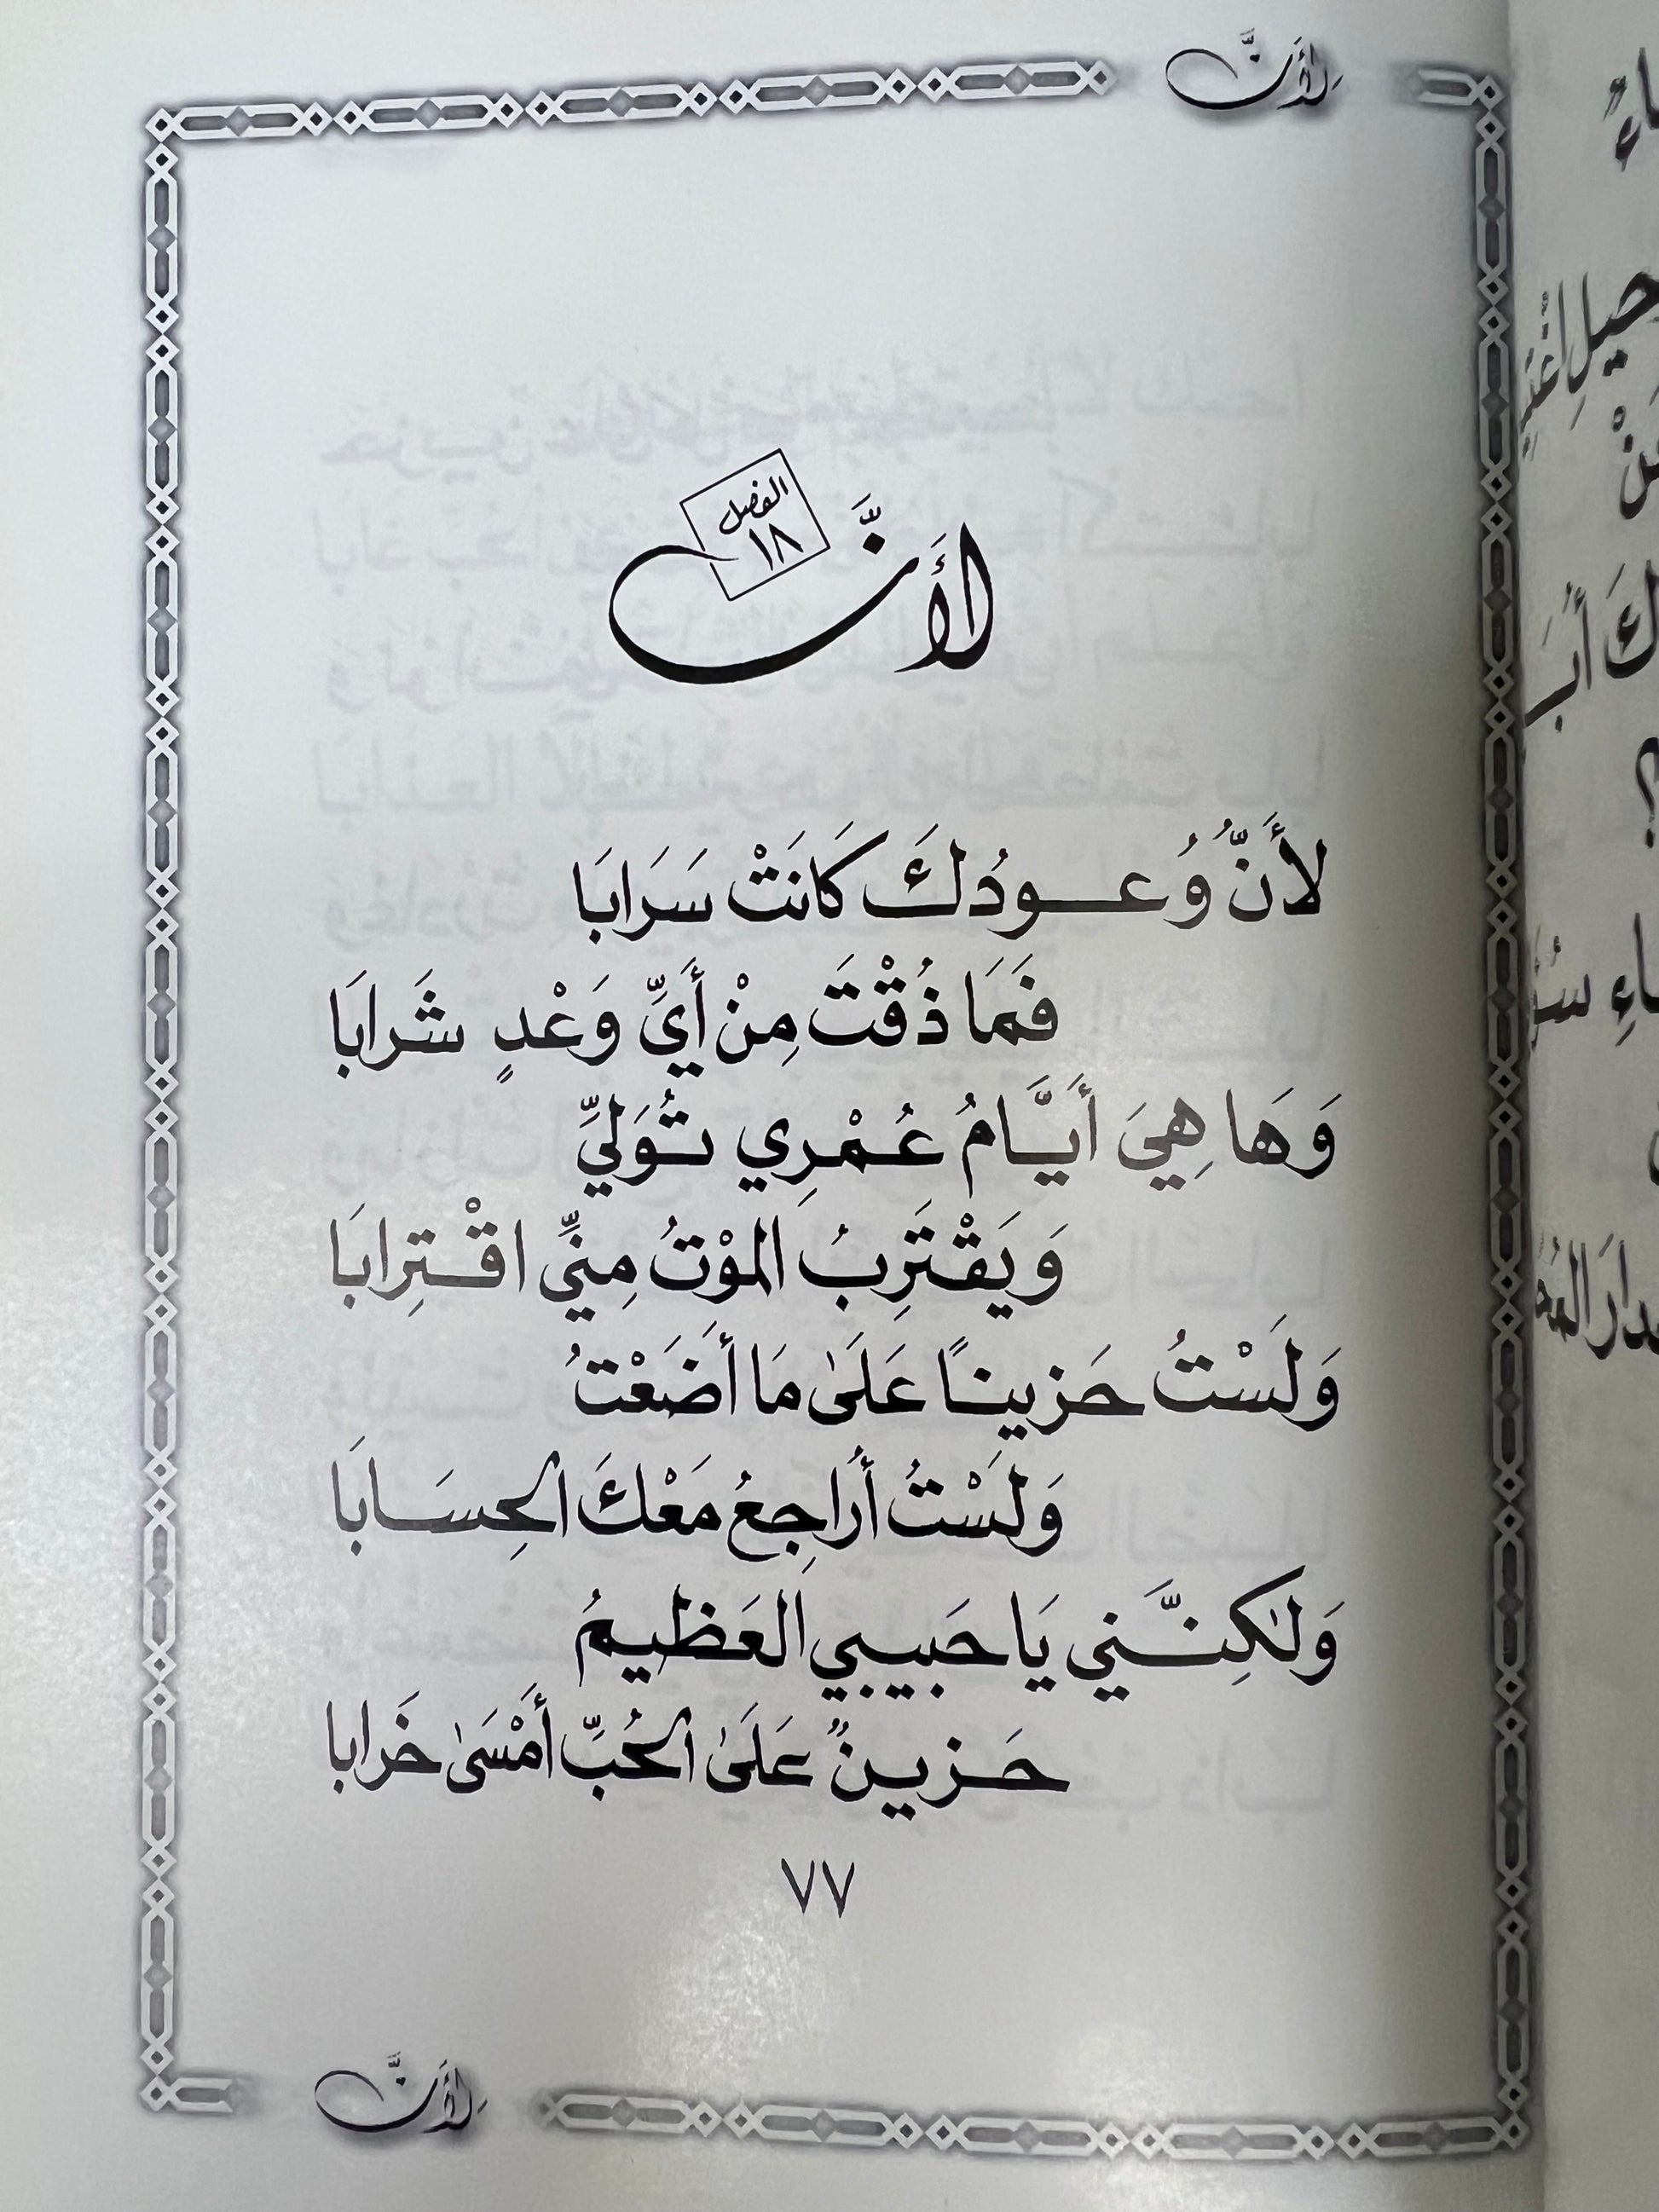 لِأَنَّ
الفصل
١٨
لأَنَّ
لأَنَّ وُعُودَكَ كَانَتْ سَرَابَا
فَمَا ذُقْتَ مِنْ أَيِّ وَعْدٍ شَرَابَا
وَهَا هِيَ أَيَّامُ عُمْرِي تُوَلِّي
وَيَقْتَرِبُ الموْتُ مِنِّي اقْتِرابَا
وَلَسْتُ حَزِينًا عَلَىٰ مَا أَضَعْتُ
وَلَسْتُ أُرَاجِعُ مَعْكَ الحِسَابَا
وَلَٰكِنَّنِي يَا حَبِيبِي العَظِيمُ
حَزِينٌ عَلَىٰ الحُبِّ أَمْسَىٰ خَرابا
٧٧
لِأَنَّ